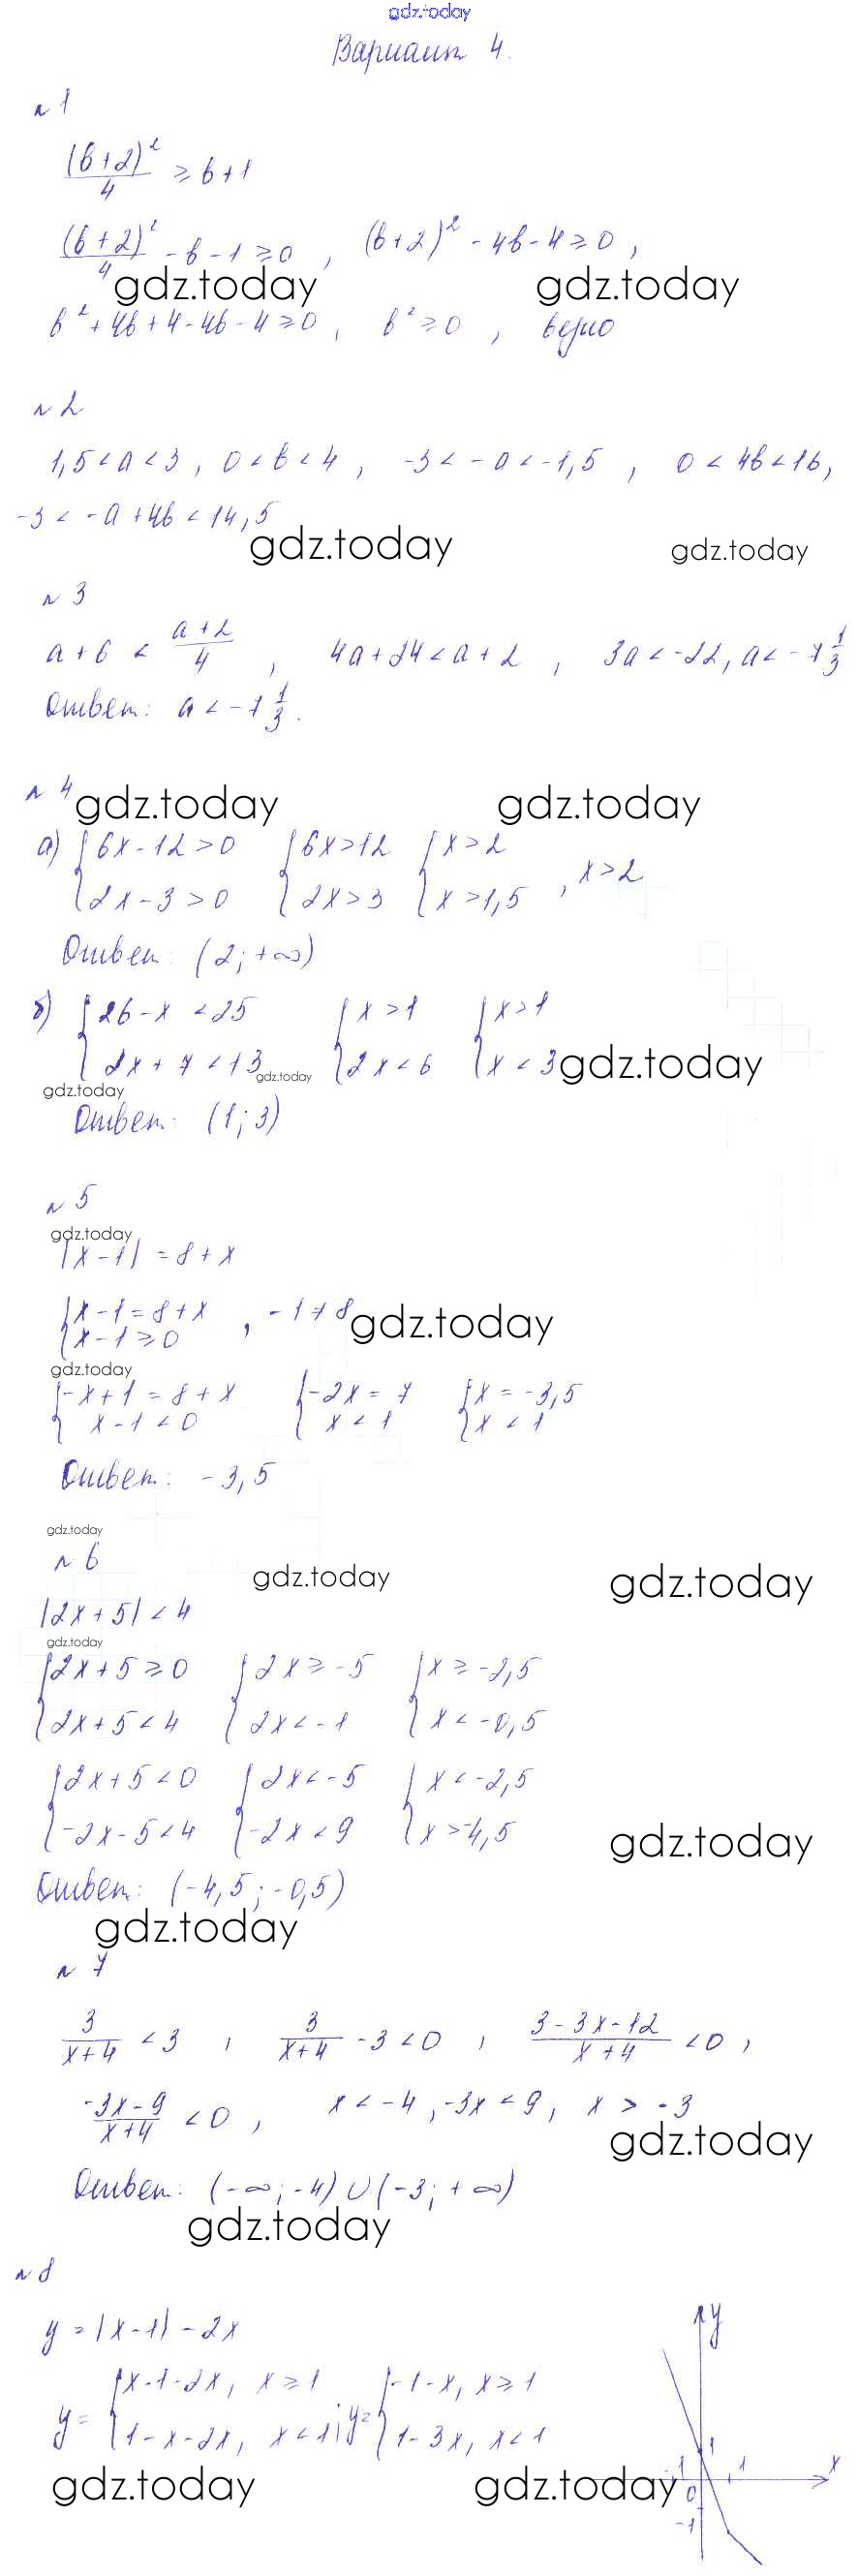 gdz.today
Вариант 4.
№1
(b+2)²/4 ≥ b+1
(b+2)²/4 - b - 1 ≥ 0, (b+2)² - 4b - 4 ≥ 0,
gdz.today gdz.today
b² + 4b + 4 - 4b - 4 ≥ 0, b² ≥ 0, верно
№2
1,5 < a < 3, 0 < b < 4, -3 < -a < -1,5, 0 < 4b < 16,
-3 < -a + 4b < 14,5
gdz.today gdz.today
№3
a + 6 < (a+2)/4, 4a + 24 < a + 2, 3a < -22, a < -7 1/3
Ответ: a < -7 1/3.
№4
gdz.today gdz.today
а) {6x - 12 > 0 {6x > 12 {x > 2
{2x - 3 > 0 {2x > 3 {x > 1,5, x > 2
Ответ: (2; +∞)
б) {26 - x < 25 {x > 1 {x > 1
{2x + 7 < 13 {2x < 6 {x < 3
gdz.today gdz.today
gdz.today
Ответ: (1; 3)
№5
gdz.today
|x - 1| = 8 + x
{x - 1 = 8 + x, -1 ≠ 8
{x - 1 ≥ 0
gdz.today
gdz.today
{-x + 1 = 8 + x {-2x = 7 {x = -3,5
{x - 1 < 0 {x < 1 {x < 1
Ответ: -3,5
gdz.today
№6
gdz.today gdz.today
|2x + 5| < 4
gdz.today
{2x + 5 ≥ 0 {2x ≥ -5 {x ≥ -2,5
{2x + 5 < 4 {2x < -1 {x < -0,5
{2x + 5 < 0 {2x < -5 {x < -2,5
{-2x - 5 < 4 {-2x < 9 {x > -4,5
gdz.today
Ответ: (-4,5; -0,5)
gdz.today
№7
3/(x+4) < 3, 3/(x+4) - 3 < 0, (3 - 3x - 12)/(x+4) < 0,
(-3x - 9)/(x+4) < 0, x < -4, -3x < 9, x > -3
gdz.today
Ответ: (-∞; -4) ∪ (-3; +∞)
gdz.today
№8
y = |x - 1| - 2x
y = {x - 1 - 2x, x ≥ 1; y = {-1 - x, x ≥ 1
{1 - x - 2x, x < 1 {1 - 3x, x < 1
gdz.today gdz.today
y
1
-1 1 x
0
-1